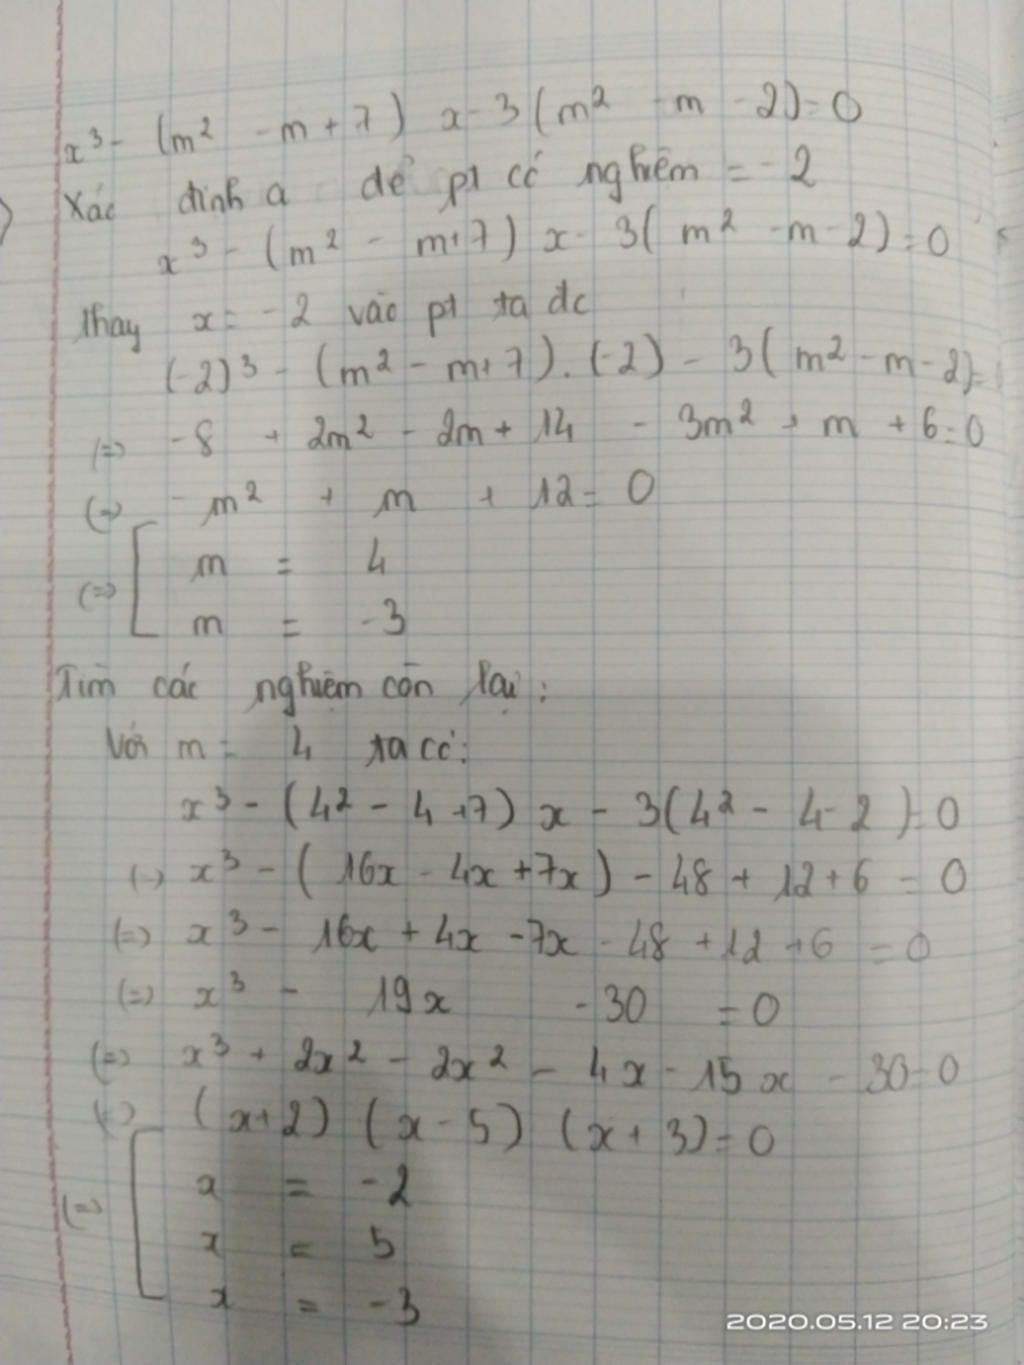 x³ - (m² - m + 7) x - 3(m² - m - 2) = 0
Xác định a để pt có nghiệm = -2
x³ - (m² - m+7) x - 3(m² - m - 2) = 0
Thay x = -2 vào pt ta đc
(-2)³ - (m² - m+7).(-2) - 3(m² - m - 2) =
(=) -8 + 2m² - 2m + 14 - 3m² + m + 6 = 0
(=) - m² + m + 12 = 0
(=) [ m = 4
m = -3
Tìm các nghiệm còn lại :
Với m = 4 ta có:
x³ - (4² - 4 + 7) x - 3(4² - 4 - 2) = 0
(=) x³ - (16x - 4x + 7x) - 48 + 12 + 6 = 0
(=) x³ - 16x + 4x - 7x - 48 + 12 + 6 = 0
(=) x³ - 19x - 30 = 0
(=) x³ + 2x² - 2x² - 4x - 15x - 30 = 0
(=) (x+2) (x - 5) (x + 3) = 0
(=) [ x = -2
x = 5
x = -3
2020.05.12 20:23